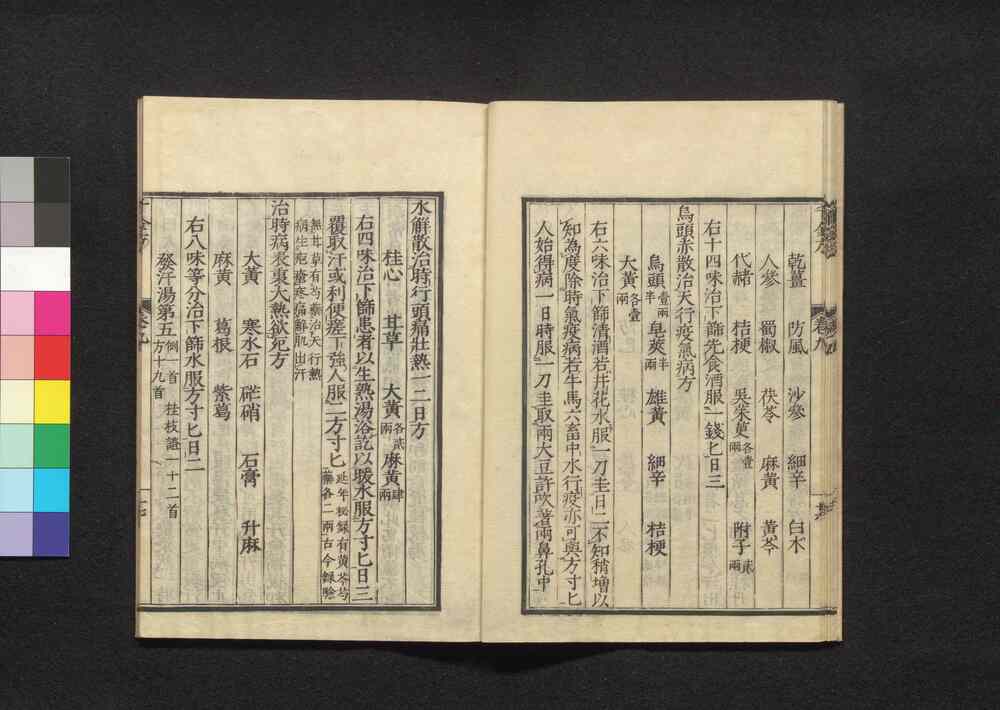 乾薑 防風 沙參 細辛 白朮
人參 蜀椒 茯苓 麻黃 黃芩
代赭 桔梗 吳茱萸各壹兩 附子貳兩
右十四味治下篩先食酒服一錢匕日三
烏頭赤散治天行疫氣病方
烏頭壹兩半 皂莢半兩 雄黃 細辛 桔梗
大黃各壹兩
右六味治下篩清酒若井花水服一刀圭日二不知稍增以
知為度除時氣疫病若牛馬六畜中水行疫亦可與方寸匕
人始得病一日時服一刀圭取兩大豆許吹著兩鼻孔中
水解散治時行頭痛壯熱一二日方
桂心 甘草 大黃各貳兩 麻黃肆兩
右四味治下篩患者以生熟湯浴訖以暖水服方寸匕日三
覆取汗或利便瘥丁強人服二方寸匕延年秘錄有黃芩芍藥各二兩古今錄驗
無甘草有芍藥治天行熱病生皰瘡疼痛解肌出汗
治時病表裏大熱欲死方
大黃 寒水石 硭硝 石膏 升麻
麻黃 葛根 紫葛
右八味等分治下篩水服方寸匕日二
發汗湯第五例一首 桂枝證一十二首 方十九首